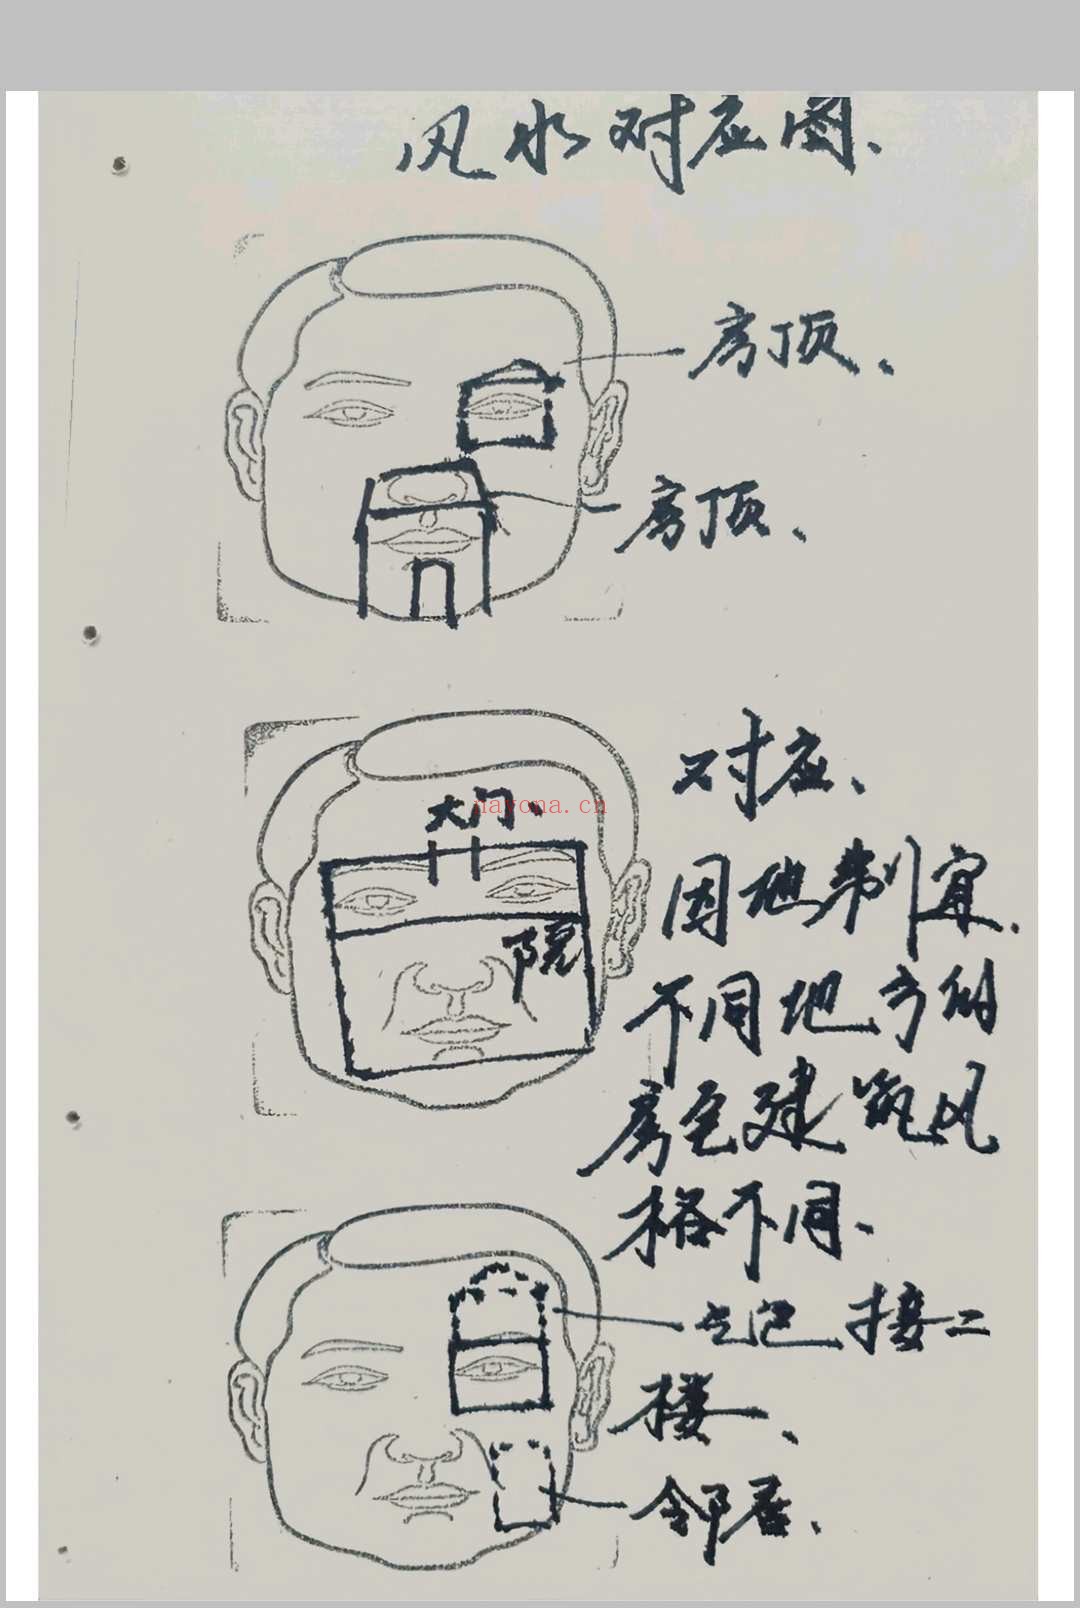 风水对应图、
房顶、
房顶、
对应、
大门、
nayona.cn
因地制宜.
院
不同地方的
房宅建筑风
格不同、
接二
楼、
邻居、